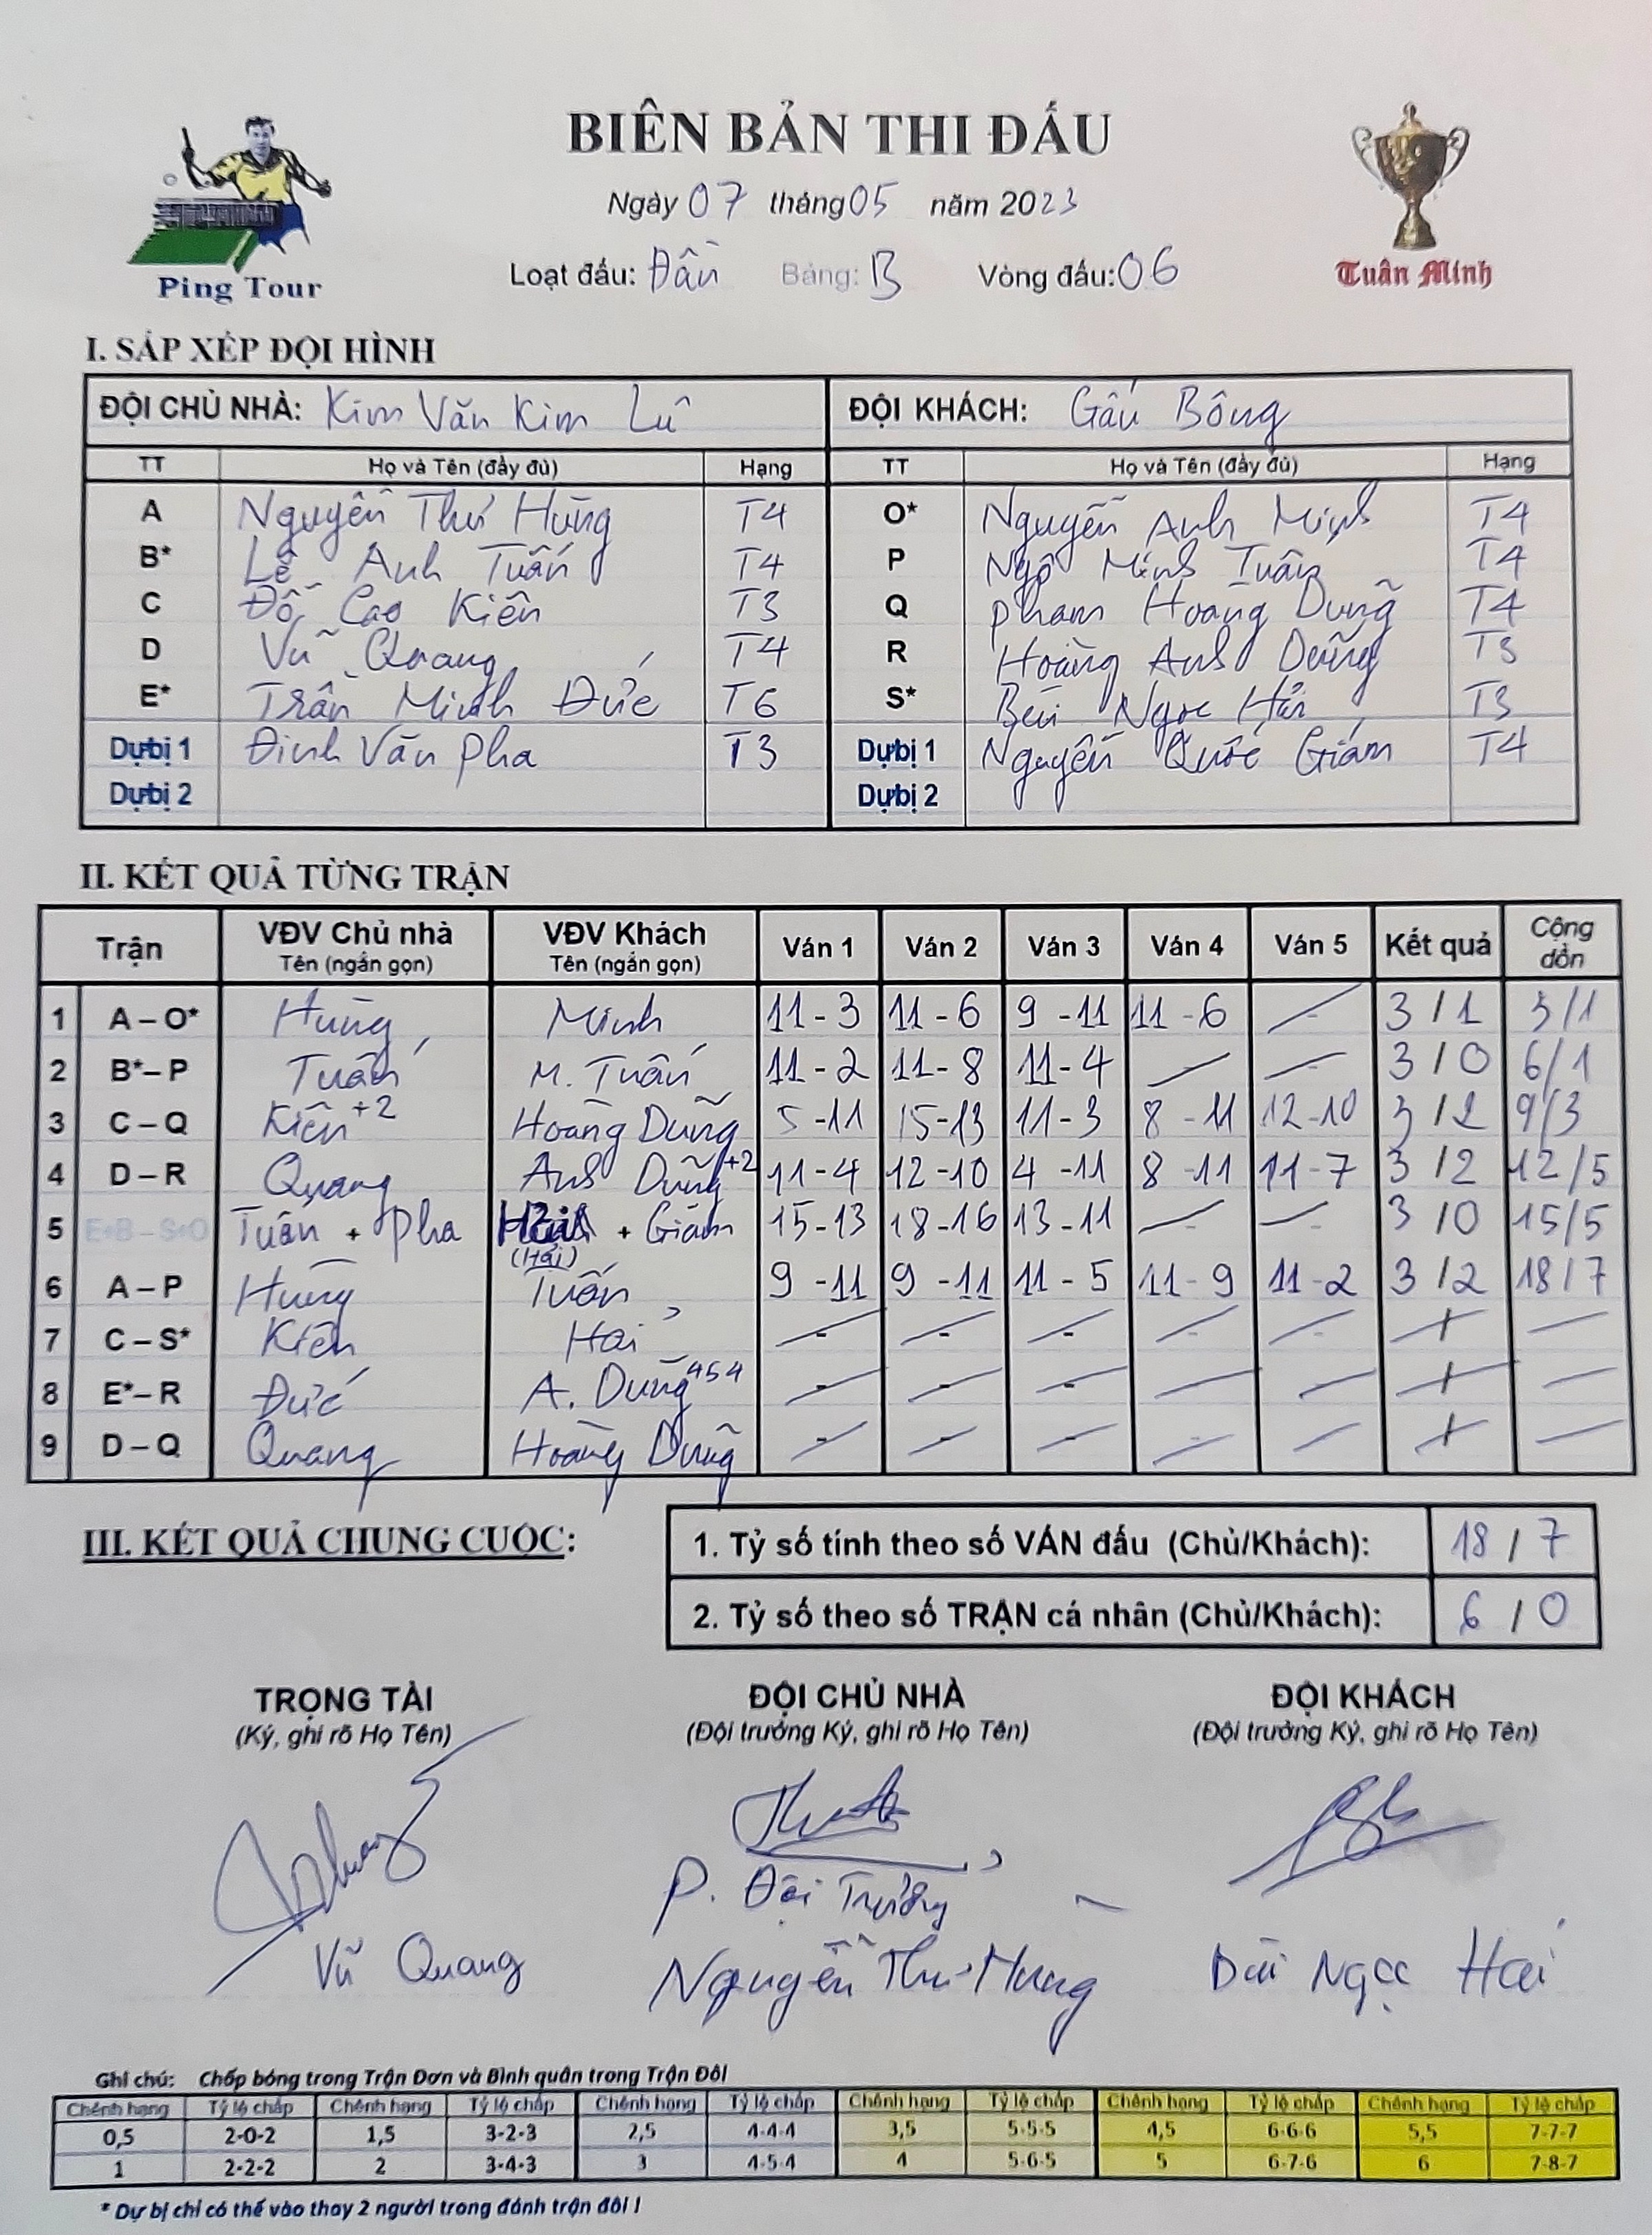 BIÊN BẢN THI ĐẤU
Ngày 07 tháng 05 năm 2023
Loạt đấu: Đầu Bảng: B Vòng đấu: 06
Ping Tour
Tuấn Minh
I. SẮP XẾP ĐỘI HÌNH
ĐỘI CHỦ NHÀ: Kim Văn Kim Lũ ĐỘI KHÁCH: Gấu Bông
TT Họ và Tên (đầy đủ) Hạng TT Họ và Tên (đầy đủ) Hạng
A Nguyễn Thư Hùng T4 O* Nguyễn Anh Minh T4
B* Lê Anh Tuấn T4 P Ngô Minh Tuấn T4
C Đỗ Cao Kiên T3 Q Phạm Hoàng Dũng T4
D Vũ Quang T4 R Hoàng Anh Dũng T3
E* Trần Minh Đức T6 S* Bùi Ngọc Hải T3
Dự bị 1 Đinh Văn Pha T3 Dự bị 1 Nguyễn Quốc Giám T4
Dự bị 2 Dự bị 2
II. KẾT QUẢ TỪNG TRẬN
Trận VĐV Chủ nhà Tên (ngắn gọn) VĐV Khách Tên (ngắn gọn) Ván 1 Ván 2 Ván 3 Ván 4 Ván 5 Kết quả Cộng dồn
1 A – O* Hùng Minh 11 - 3 11 - 6 9 - 11 11 - 6 3 / 1 3/1
2 B* – P Tuấn M. Tuấn 11 - 2 11 - 8 11 - 4 3 / 0 6/1
3 C – Q Kiên +2 Hoàng Dũng 5 - 11 15-13 11 - 3 8 - 11 12-10 3 / 2 9/3
4 D – R Quang Anh Dũng +2 11 - 4 12 - 10 4 - 11 8 - 11 11 - 7 3 / 2 12/5
5 E+B – S+O Tuấn + Pha + Giám 15-13 18-16 13-11 3 / 0 15/5
(Hải)
6 A – P Hùng Tuấn 9 - 11 9 - 11 11 - 5 11 - 9 11 - 2 3 / 2 18/7
7 C – S* Kiên Hải
8 E* – R Đức A. Dũng 454
9 D – Q Quang Hoàng Dũng
III. KẾT QUẢ CHUNG CUỘC:
1. Tỷ số tính theo số VÁN đấu (Chủ/Khách): 18 / 7
2. Tỷ số theo số TRẬN cá nhân (Chủ/Khách): 6 / 0
TRỌNG TÀI ĐỘI CHỦ NHÀ ĐỘI KHÁCH
(Ký, ghi rõ Họ Tên) (Đội trưởng Ký, ghi rõ Họ Tên) (Đội trưởng Ký, ghi rõ Họ Tên)
P. Đội Trưởng
Vũ Quang Nguyễn Thư Hùng Bùi Ngọc Hải
Ghi chú: Chấp bóng trong Trận Đơn và Bình quân trong Trận Đôi
Chênh hạng Tỷ lệ chấp Chênh hạng Tỷ lệ chấp Chênh hạng Tỷ lệ chấp Chênh hạng Tỷ lệ chấp Chênh hạng Tỷ lệ chấp Chênh hạng Tỷ lệ chấp
0,5 2-0-2 1,5 3-2-3 2,5 4-4-4 3,5 5-5-5 4,5 6-6-6 5,5 7-7-7
1 2-2-2 2 3-4-3 3 4-5-4 4 5-6-5 5 6-7-6 6 7-8-7
* Dự bị chỉ có thể vào thay 2 người trong đánh trận đôi !